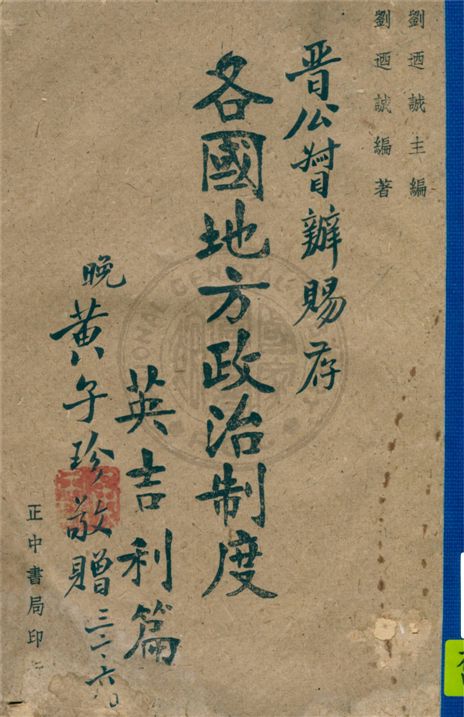 劉迺誠主編
劉迺誠編著
晋公督辦賜存
各國地方政治制度
英吉利篇
晚黃子珍敬贈
三二、六、
正中書局印